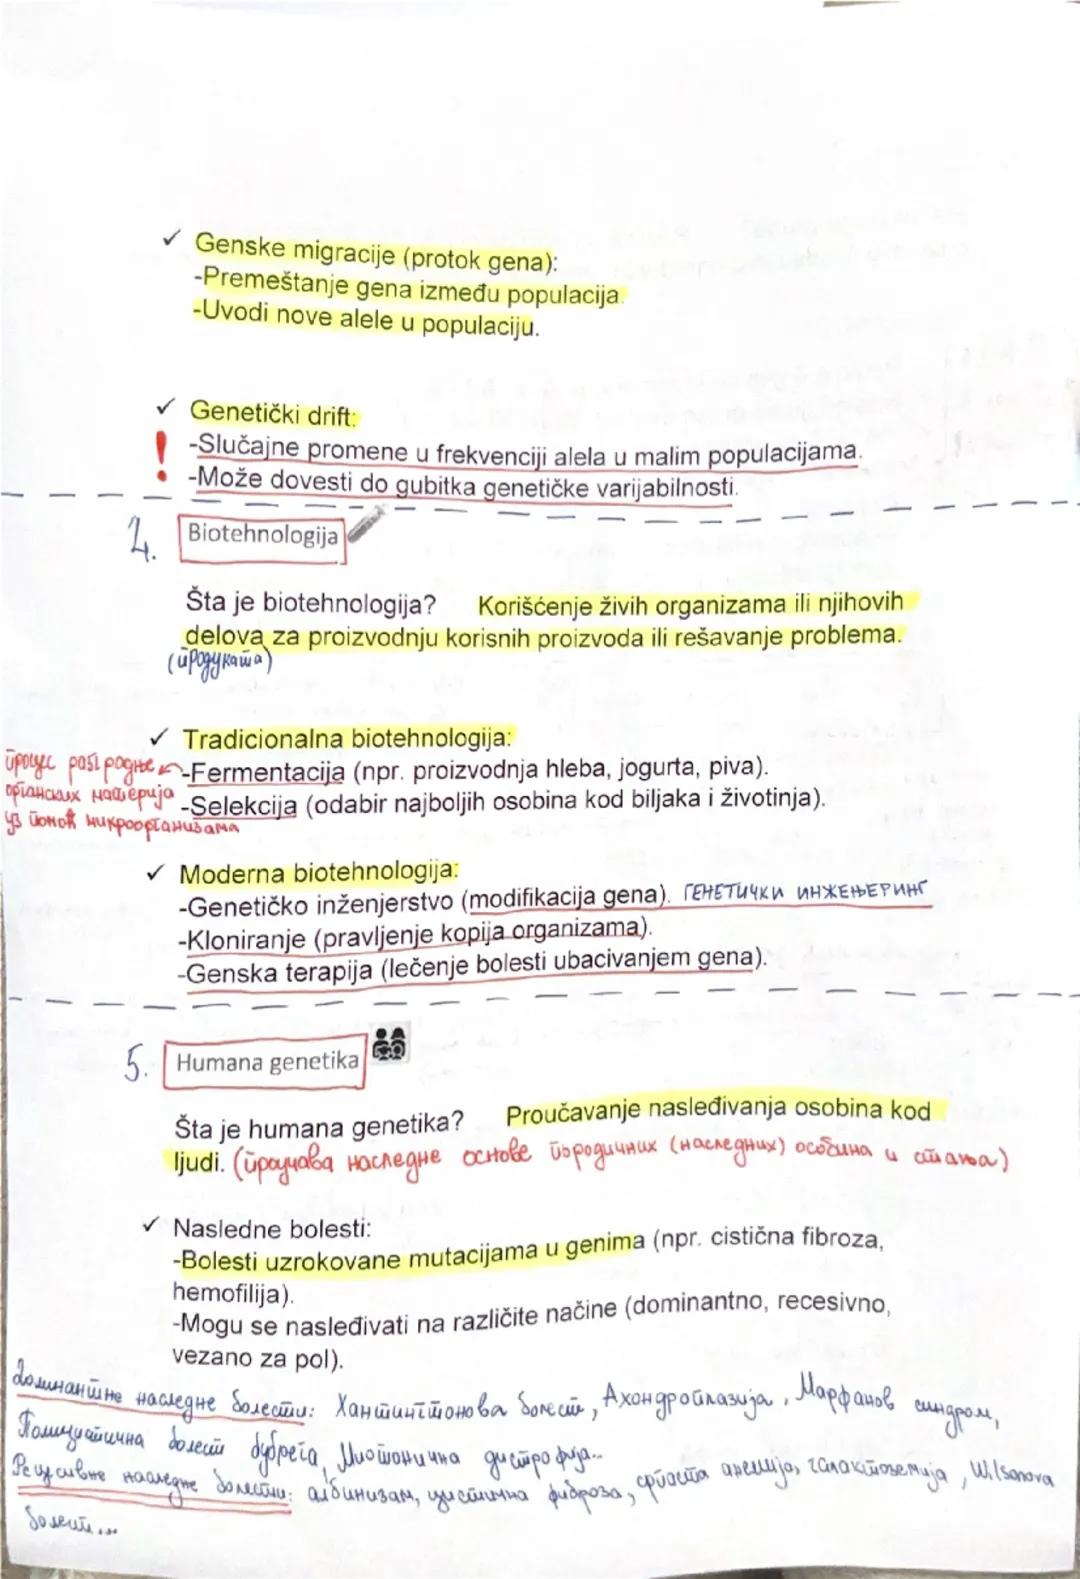 ✓ Genske migracije (protok gena):
-Premeštanje gena između populacija.
-Uvodi nove alele u populaciju.
✓ Genetički drift:
! -Slučajne promene u frekvenciji alela u malim populacijama.
-Može dovesti do gubitka genetičke varijabilnosti.
4. Biotehnologija
Šta je biotehnologija? Korišćenje živih organizama ili njihovih
delova za proizvodnju korisnih proizvoda ili rešavanje problema.
(продуката)
✓ Tradicionalna biotehnologija:
-Fermentacija (npr. proizvodnja hleba, jogurta, piva).
-Selekcija (odabir najboljih osobina kod biljaka i životinja).
процес разградње
органских материја
уз помоћ микроорганизама
✓ Moderna biotehnologija:
-Genetičko inženjerstvo (modifikacija gena). ГЕНЕТИЧКИ ИНЖЕЊЕРИНГ
-Kloniranje (pravljenje kopija organizama).
-Genska terapija (lečenje bolesti ubacivanjem gena).
5. Humana genetika
Šta je humana genetika? Proučavanje nasleđivanja osobina kod
ljudi. (проучава наследне основе породичних (наследних) особина и стања)
✓ Nasledne bolesti:
-Bolesti uzrokovane mutacijama u genima (npr. cistična fibroza,
hemofilija).
-Mogu se nasleđivati na različite načine (dominantno, recesivno,
vezano za pol).
Доминантне наследне болести: Хантингтонова болест, Ахондроплазија, Марфанов синдром,
Полицистична болест бубрега, Миотонична дистрофија..
Рецесивне наследне болести: албинизам, цистична фиброза, српаста анемија, галактоземија, Wilsonova
болест...